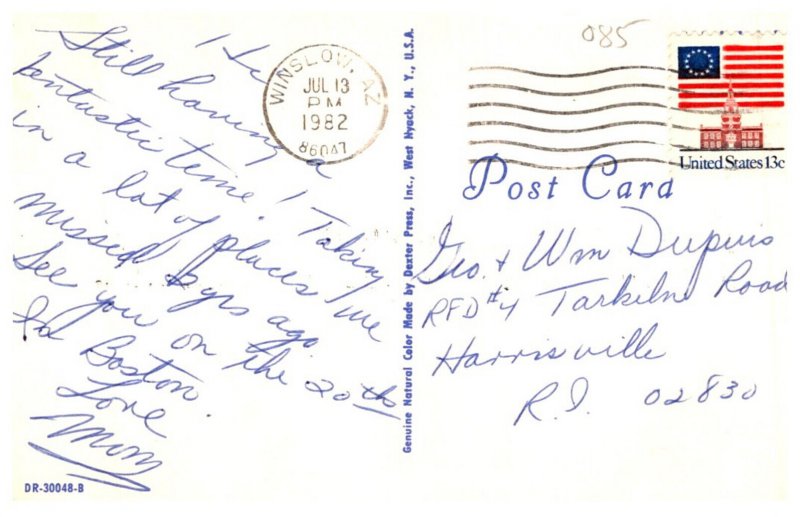 Still having a
fentustic time! Taking
in a lot of places we
missed 5 yrs ago
See you on the 20th
Boston.
Love
Mom
DR-30048-B
WINSLOW, AZ
JUL 13
PM
1982
86047
Genuine Natural Color Made by Dexter Press, Inc., West Nyack, N. Y., U.S.A.
085
United States 13c
Post Card
Geo. & Wm Dupuis
RFD #4 Tarkiln Road
Harrisville
R.I. 02830